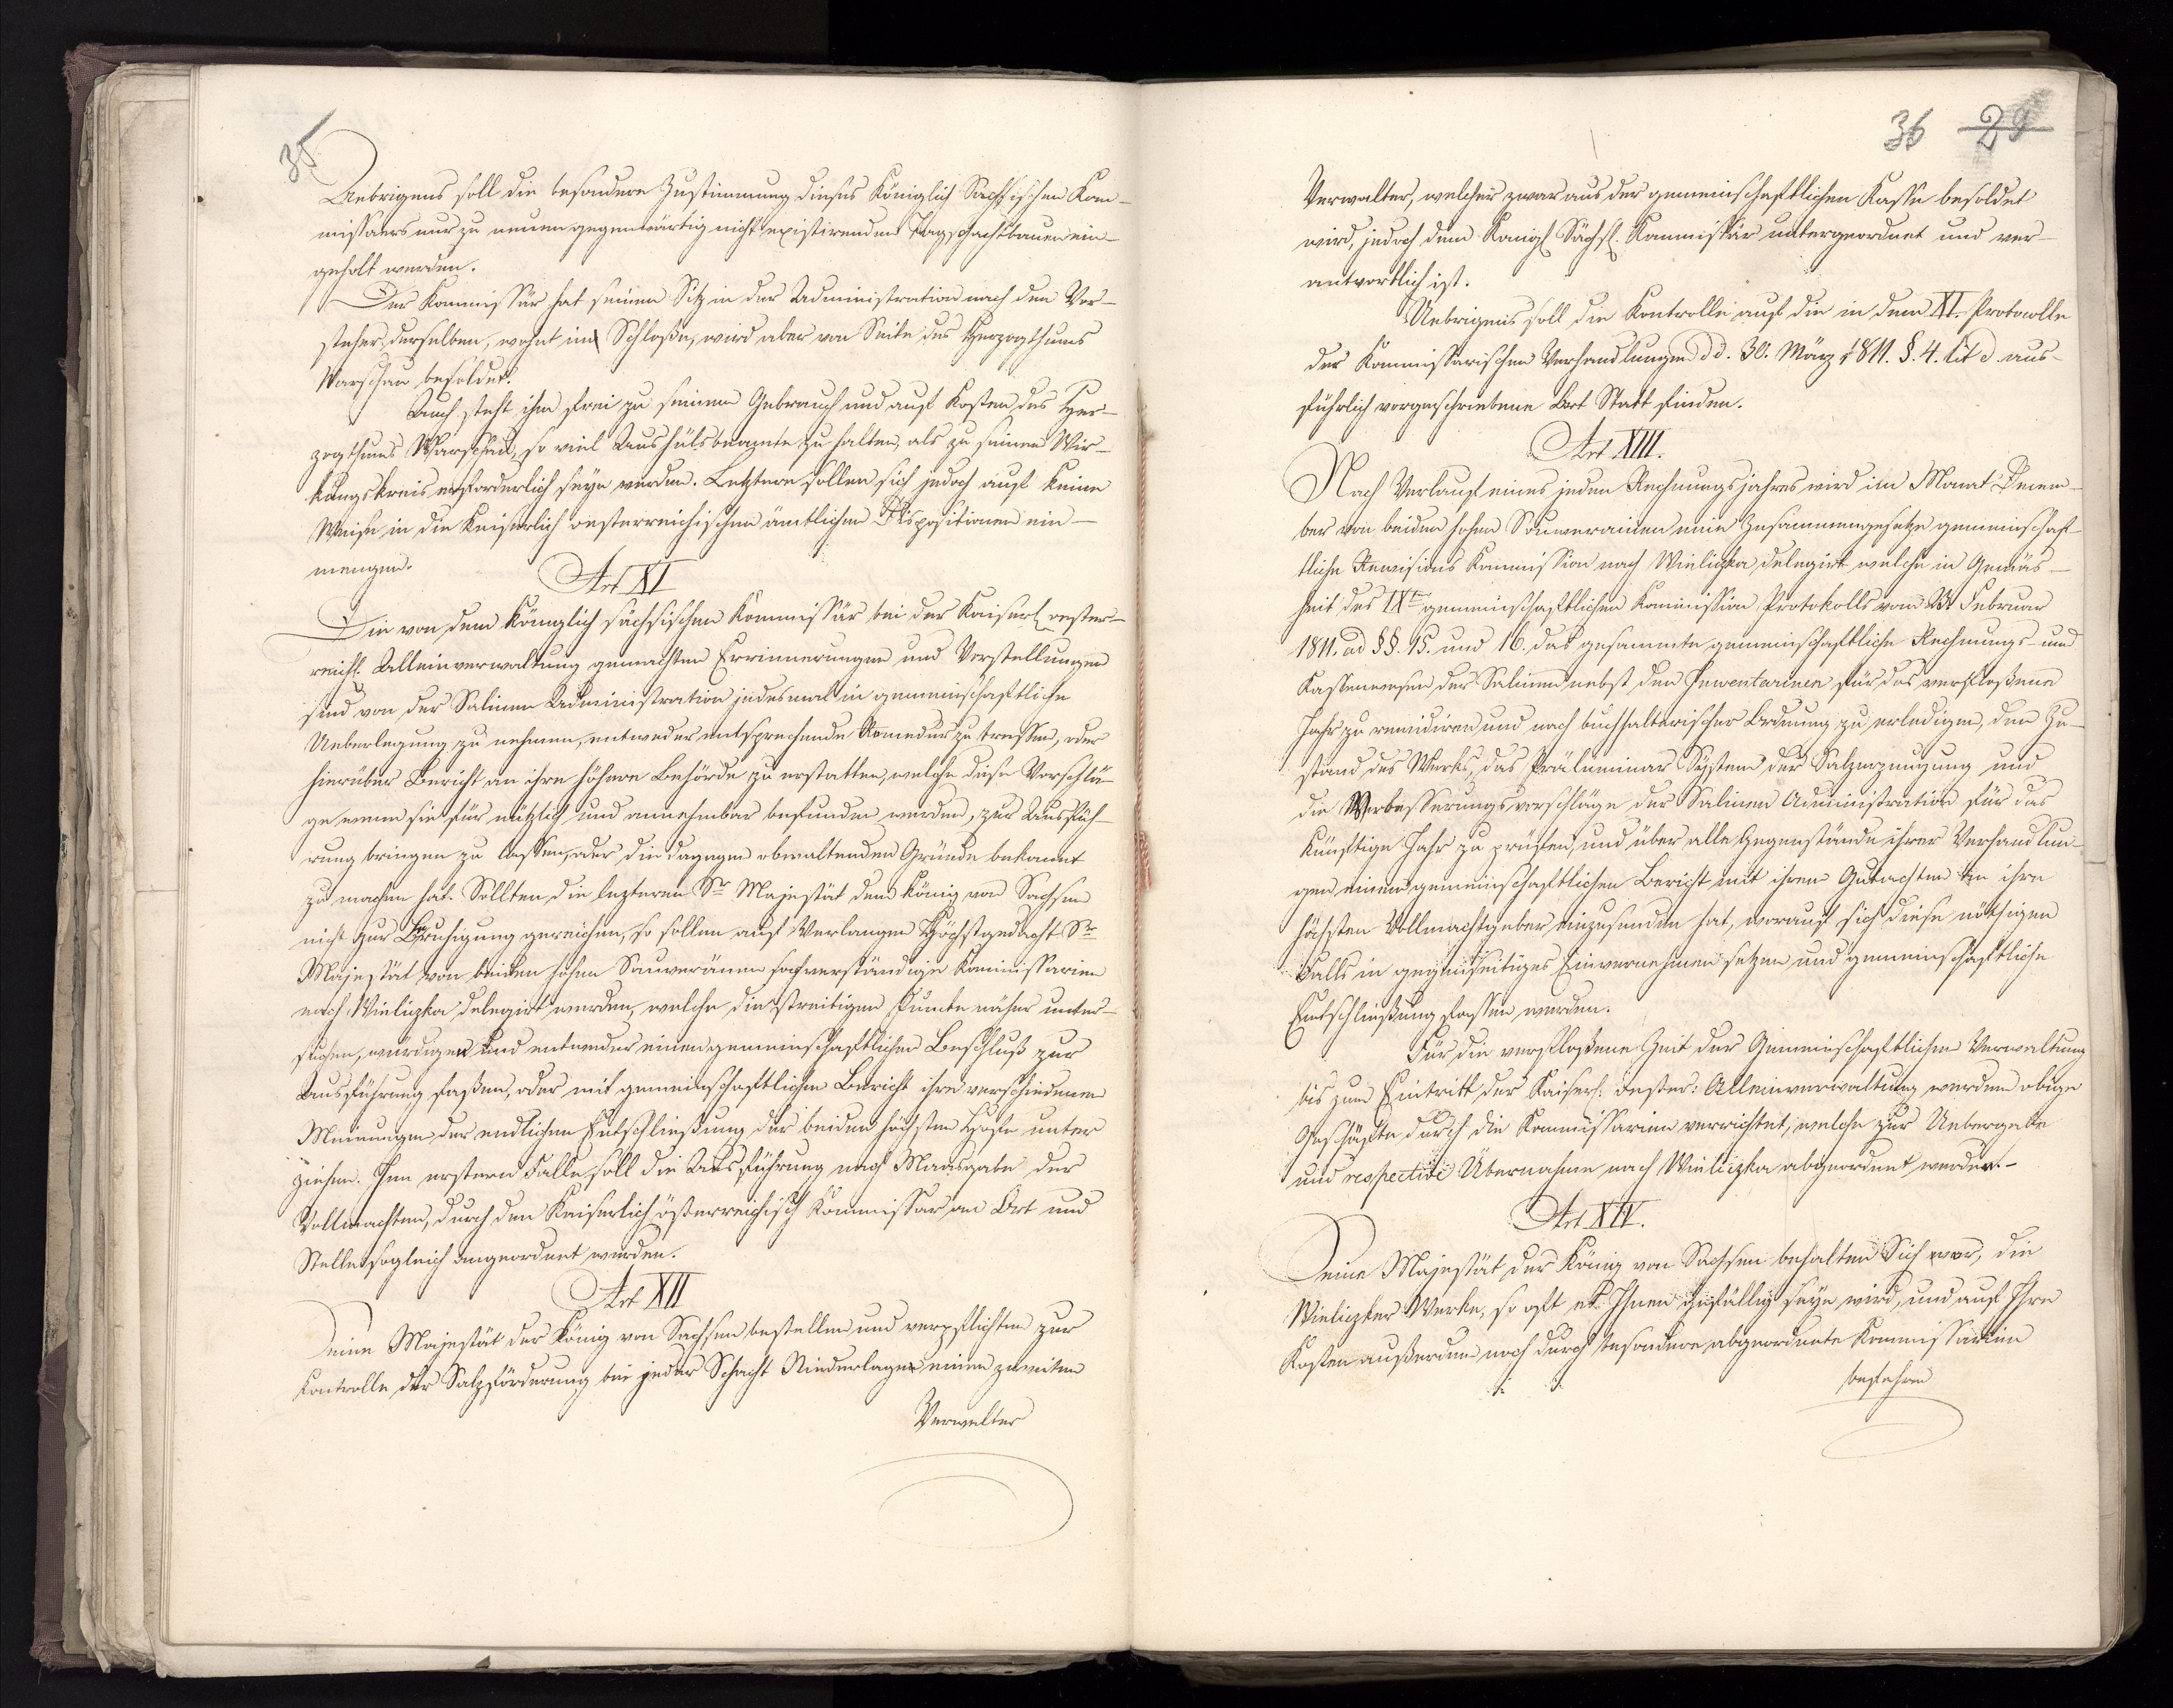 35
Uebrigens soll die besondere Zustimmung dieses Königlich Sächsischen Kom-
missaers nur zu neuen gegenwärtig nicht existirenden Tagschachtbauen ein-
geholt werden.
Der Kommissär hat seinen Sitz in der Administration nach dem Vor-
steher derselben, wohnt im Schloße, wird aber von Seite des Herzogthums
Warschau besoldet.
Auch steht ihm frei zu seinem Gebrauch und auf Kosten des Her-
zogthums Warschau, so viel Aushülsbeamte zu halten, als zu seinem Wir-
kungskreis erforderlich seyn werden. Letztere sollen sich jedoch auf keine
Weise in die Keiserlich oesterreichischen ämtlichen Dispositionen ein-
mengen.
Art XI
Die von dem Königlich sächsischen Kommissär bei der Kaiserl. oester-
reich. Alleinverwaltung gemachten Errinnerungen und Vorstellungen
sind von der Salinen Administration jedesmal in gemeinschaftliche
Ueberlegung zu nehmen, entweder entsprechende Remedur zu treffen, oder
hierüber Bericht an ihre höhere Behörde zu erstatten, welche diese Vorschlä-
ge wenn sie für nützlich und annehmbar befunden werden, zur Ausfüh-
rung bringen zu lassen, oder die dagegen obwaltenden Gründe bekannt
zu machen hat. Sollten die lezteren Sr Majestät dem König von Sachsen
nicht zur Beruhigung gereichen, so sollen auf Verlangen Höchstgedacht Sr
Majestät von beiden hohen Souveränen sachverständige Kommissarien
nach Wieliczka delegirt werden, welche die streitigen Puncte näher unter-
suchen, würdigen und entweder einen gemeinschaftlichen Beschluß zur
Ausführung faßen, oder mit gemeinschaftlichen Bericht ihre verschiedenen
Meinungen der endlichen Entschließung der beiden höchsten Höfe unter
ziehen. Im erstern Falle, soll die Ausführung nach Maasgabe der
Vollmachten, durch den Kaiserlich österreichisch Kommissar an Ort und
Stelle sogleich angeordnet werden.
Art XII
Seine Majestät der König von Sachsen bestellen und verpflichten zur
Kontrolle der Salzförderung bei jeder Schacht Niederlagen einen zweiten
Verwalter
36 29
Verwalter, welcher zwar aus der gemeinschaftlichen Kasse besoldet
wird, jedoch dem Königl Sächs. Kommissär untergeordnet und ver-
antwortlich ist.
Uebrigens soll die Kontrolle auf die in dem XI. Protocolle
der Kommissarischen Verhandlungen dd. 30. März 1811. §. 4. Lit d aus-
führlich vorgeschriebene Art Statt finden.
Art XIII.
Nach Verlauf eines jeden Rechnungsjahres wird im Monat Decem-
ber von beiden hohen Souverainen eine Zusammengesetzte gemeinschaf-
tliche Revisions Kommission nach Wieliczka delegirt welche in Gemäs-
heit des IXten gemeinschaftlichen Kommission Protokolls vom Februar
1811. ad §§. 15. und 16. das gesammte gemeinschaftliche Rechnungs- und
Kassenwesen der Salinen nebst den Inventarien für das verfloßene
Jahr zu revidiren und nach buchhalterischer Ordnung zu erledigen, den Zu-
stand des Werks, das Präluminar System der Salzerzeugung und
die Verbesserungsvorschläge der Salinen Administration für das
künftige Jahr zu prüfen, und über alle Gegenstände ihrer Verhandlun-
gen einen gemeinschaftlichen Bericht mit ihren Gutachten an ihre
höchsten Vollmachtgeber einzusenden hat, worauf sich diese nöthigen
Falls in gegenseitiges Einvernehmen setzen, und gemeinschaftliche
Entschließung fassen werden.
Für die verfloßene Zeit der Gemeinschaftlichen Verwaltung
bis zum Eintritt der Kaiserl: oester: Alleinverwaltung werden obige
Geschäfte durch die Kommissarien verrichtet, welche zur Uebergabe
und respective Übernahme nach Wieliczka abgeordnet werden.-
Art XIV.
Seine Majestät der König von Sachsen behalten Sich vor, die
Wieliczker Werke, so oft es Ihnen gefällig seyn wird, und auf Ihre
Kosten außerdem noch durch besondere abgeordnete Kommissarien
befahren